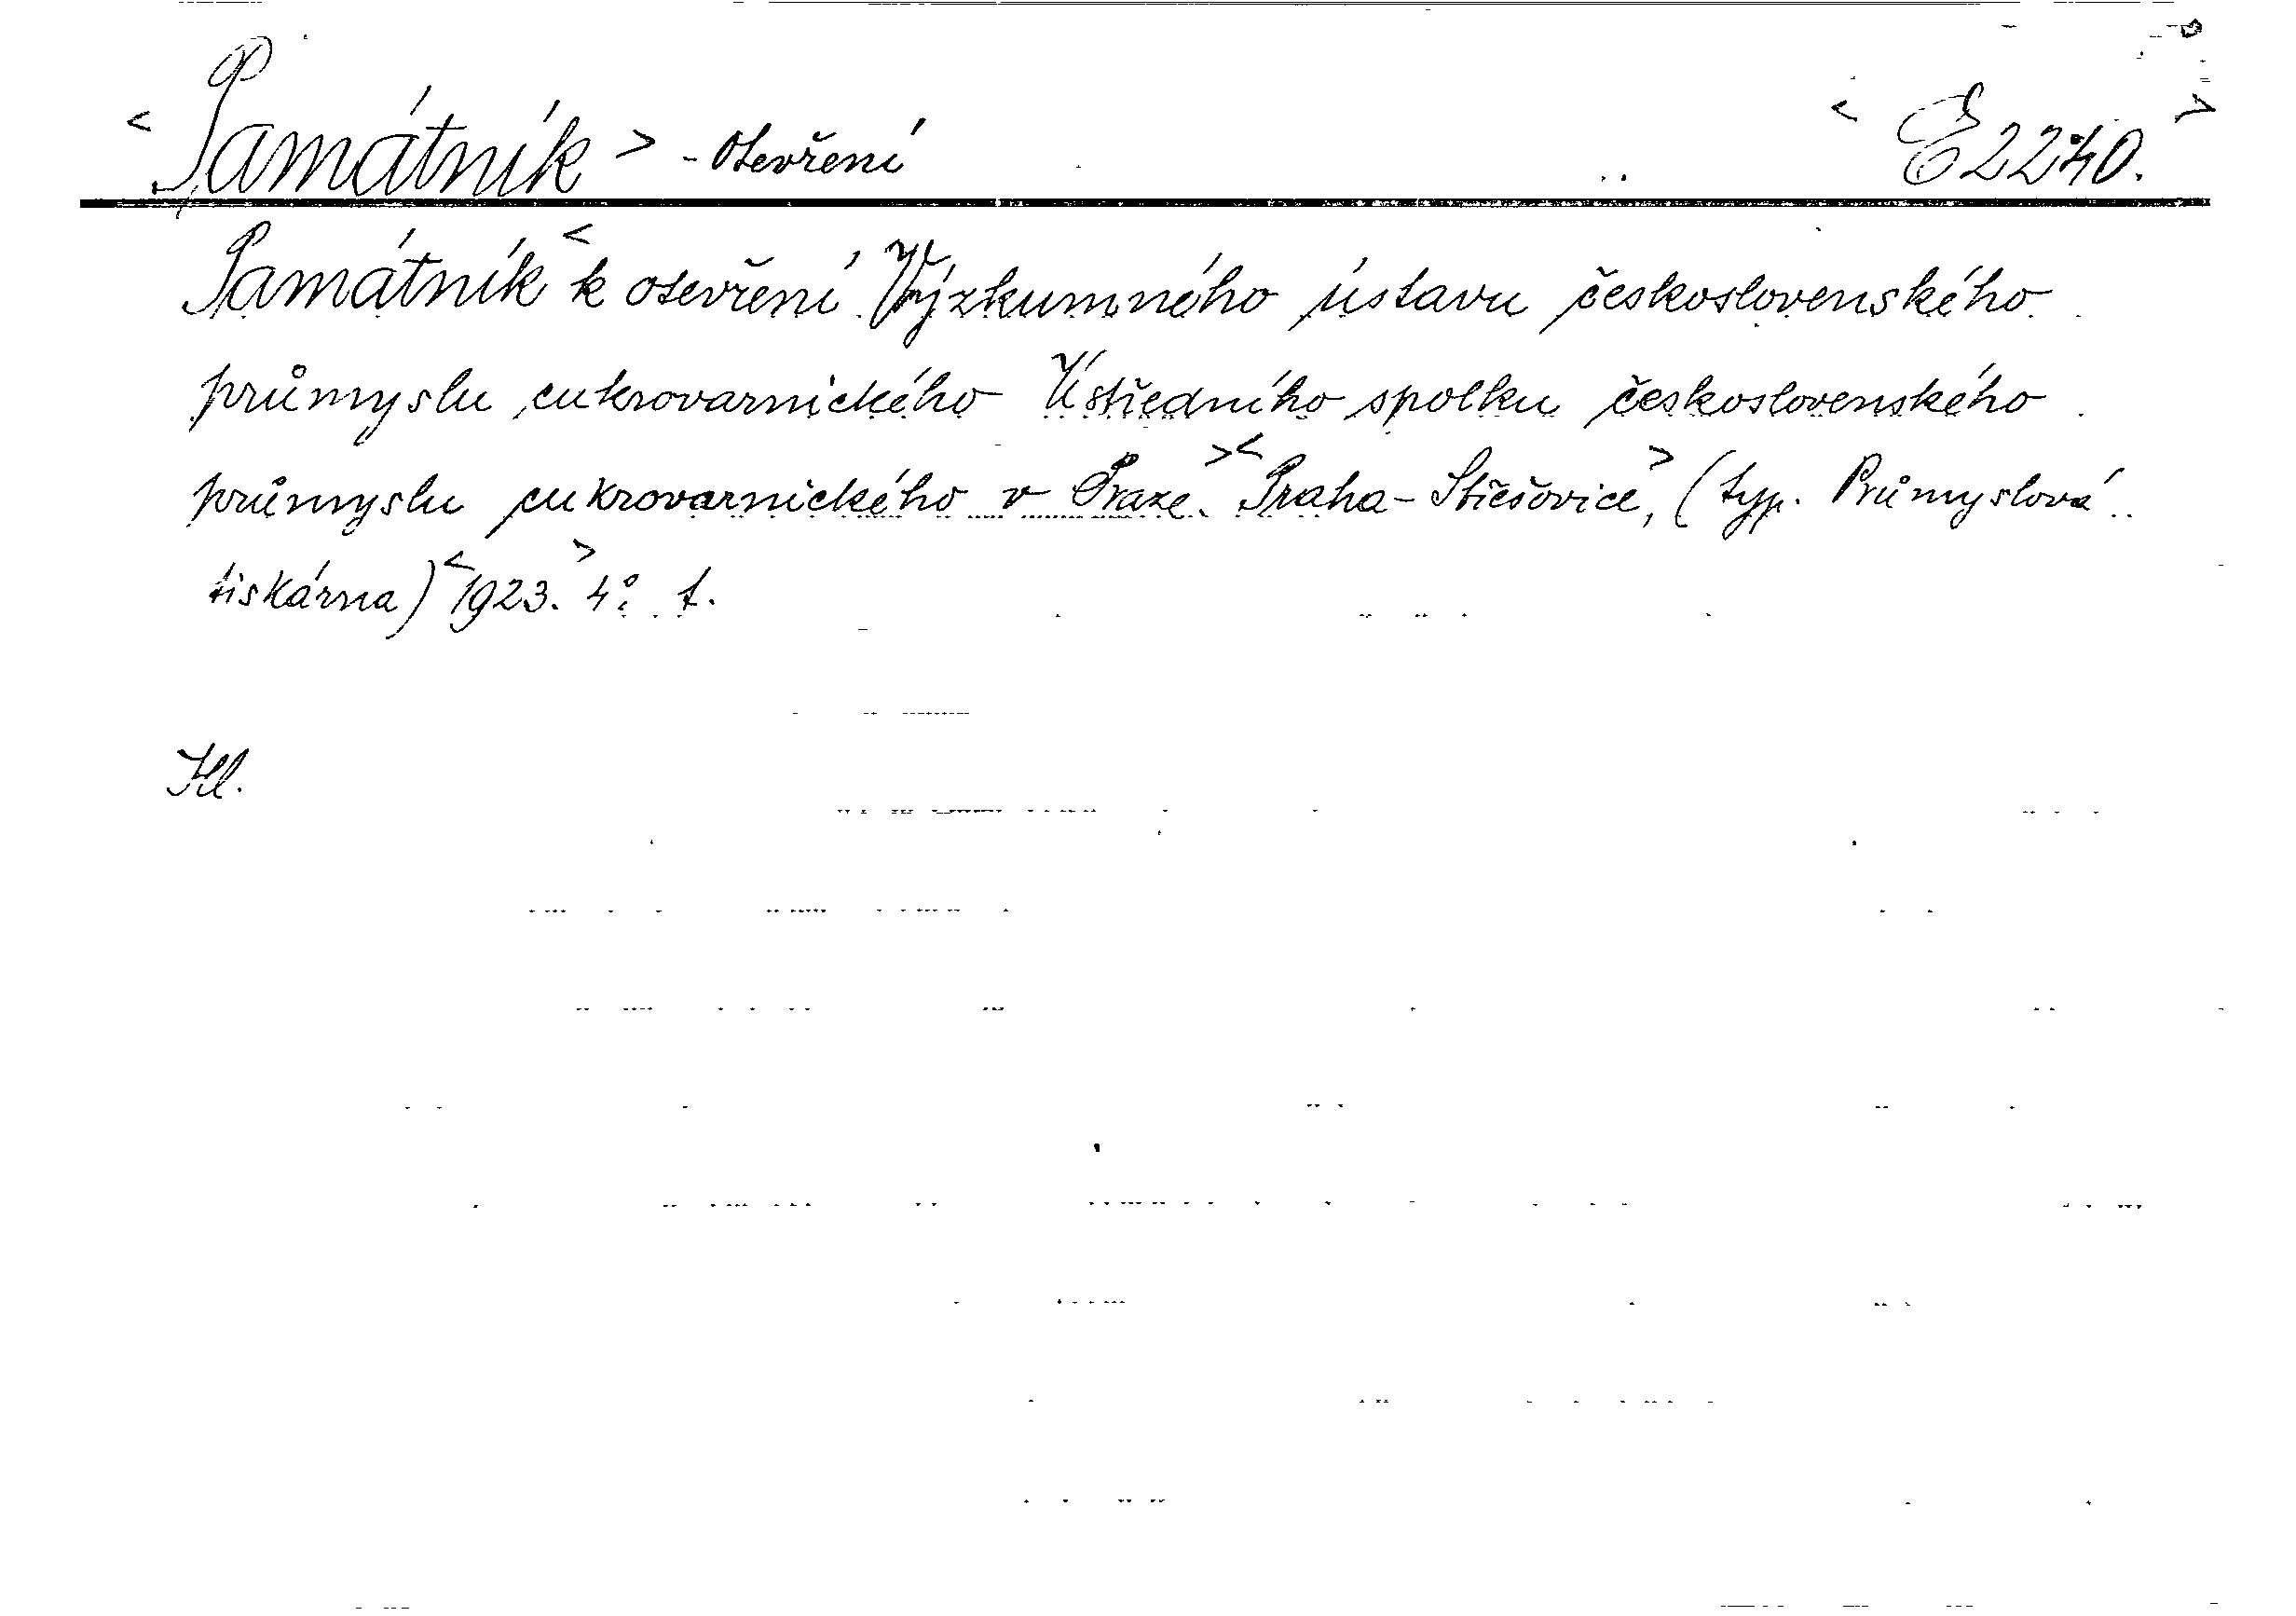 < Památník > - otevření < E 2240. >
Památník < k otevření Výzkumného ústavu československého
průmyslu cukrovarnického Ústředního spolku československého
průmyslu cukrovarnického v Praze. >< Praha - Střešovice, > (typ. Průmyslová
tiskárna) < 1923. > 4°. t.
Kl.